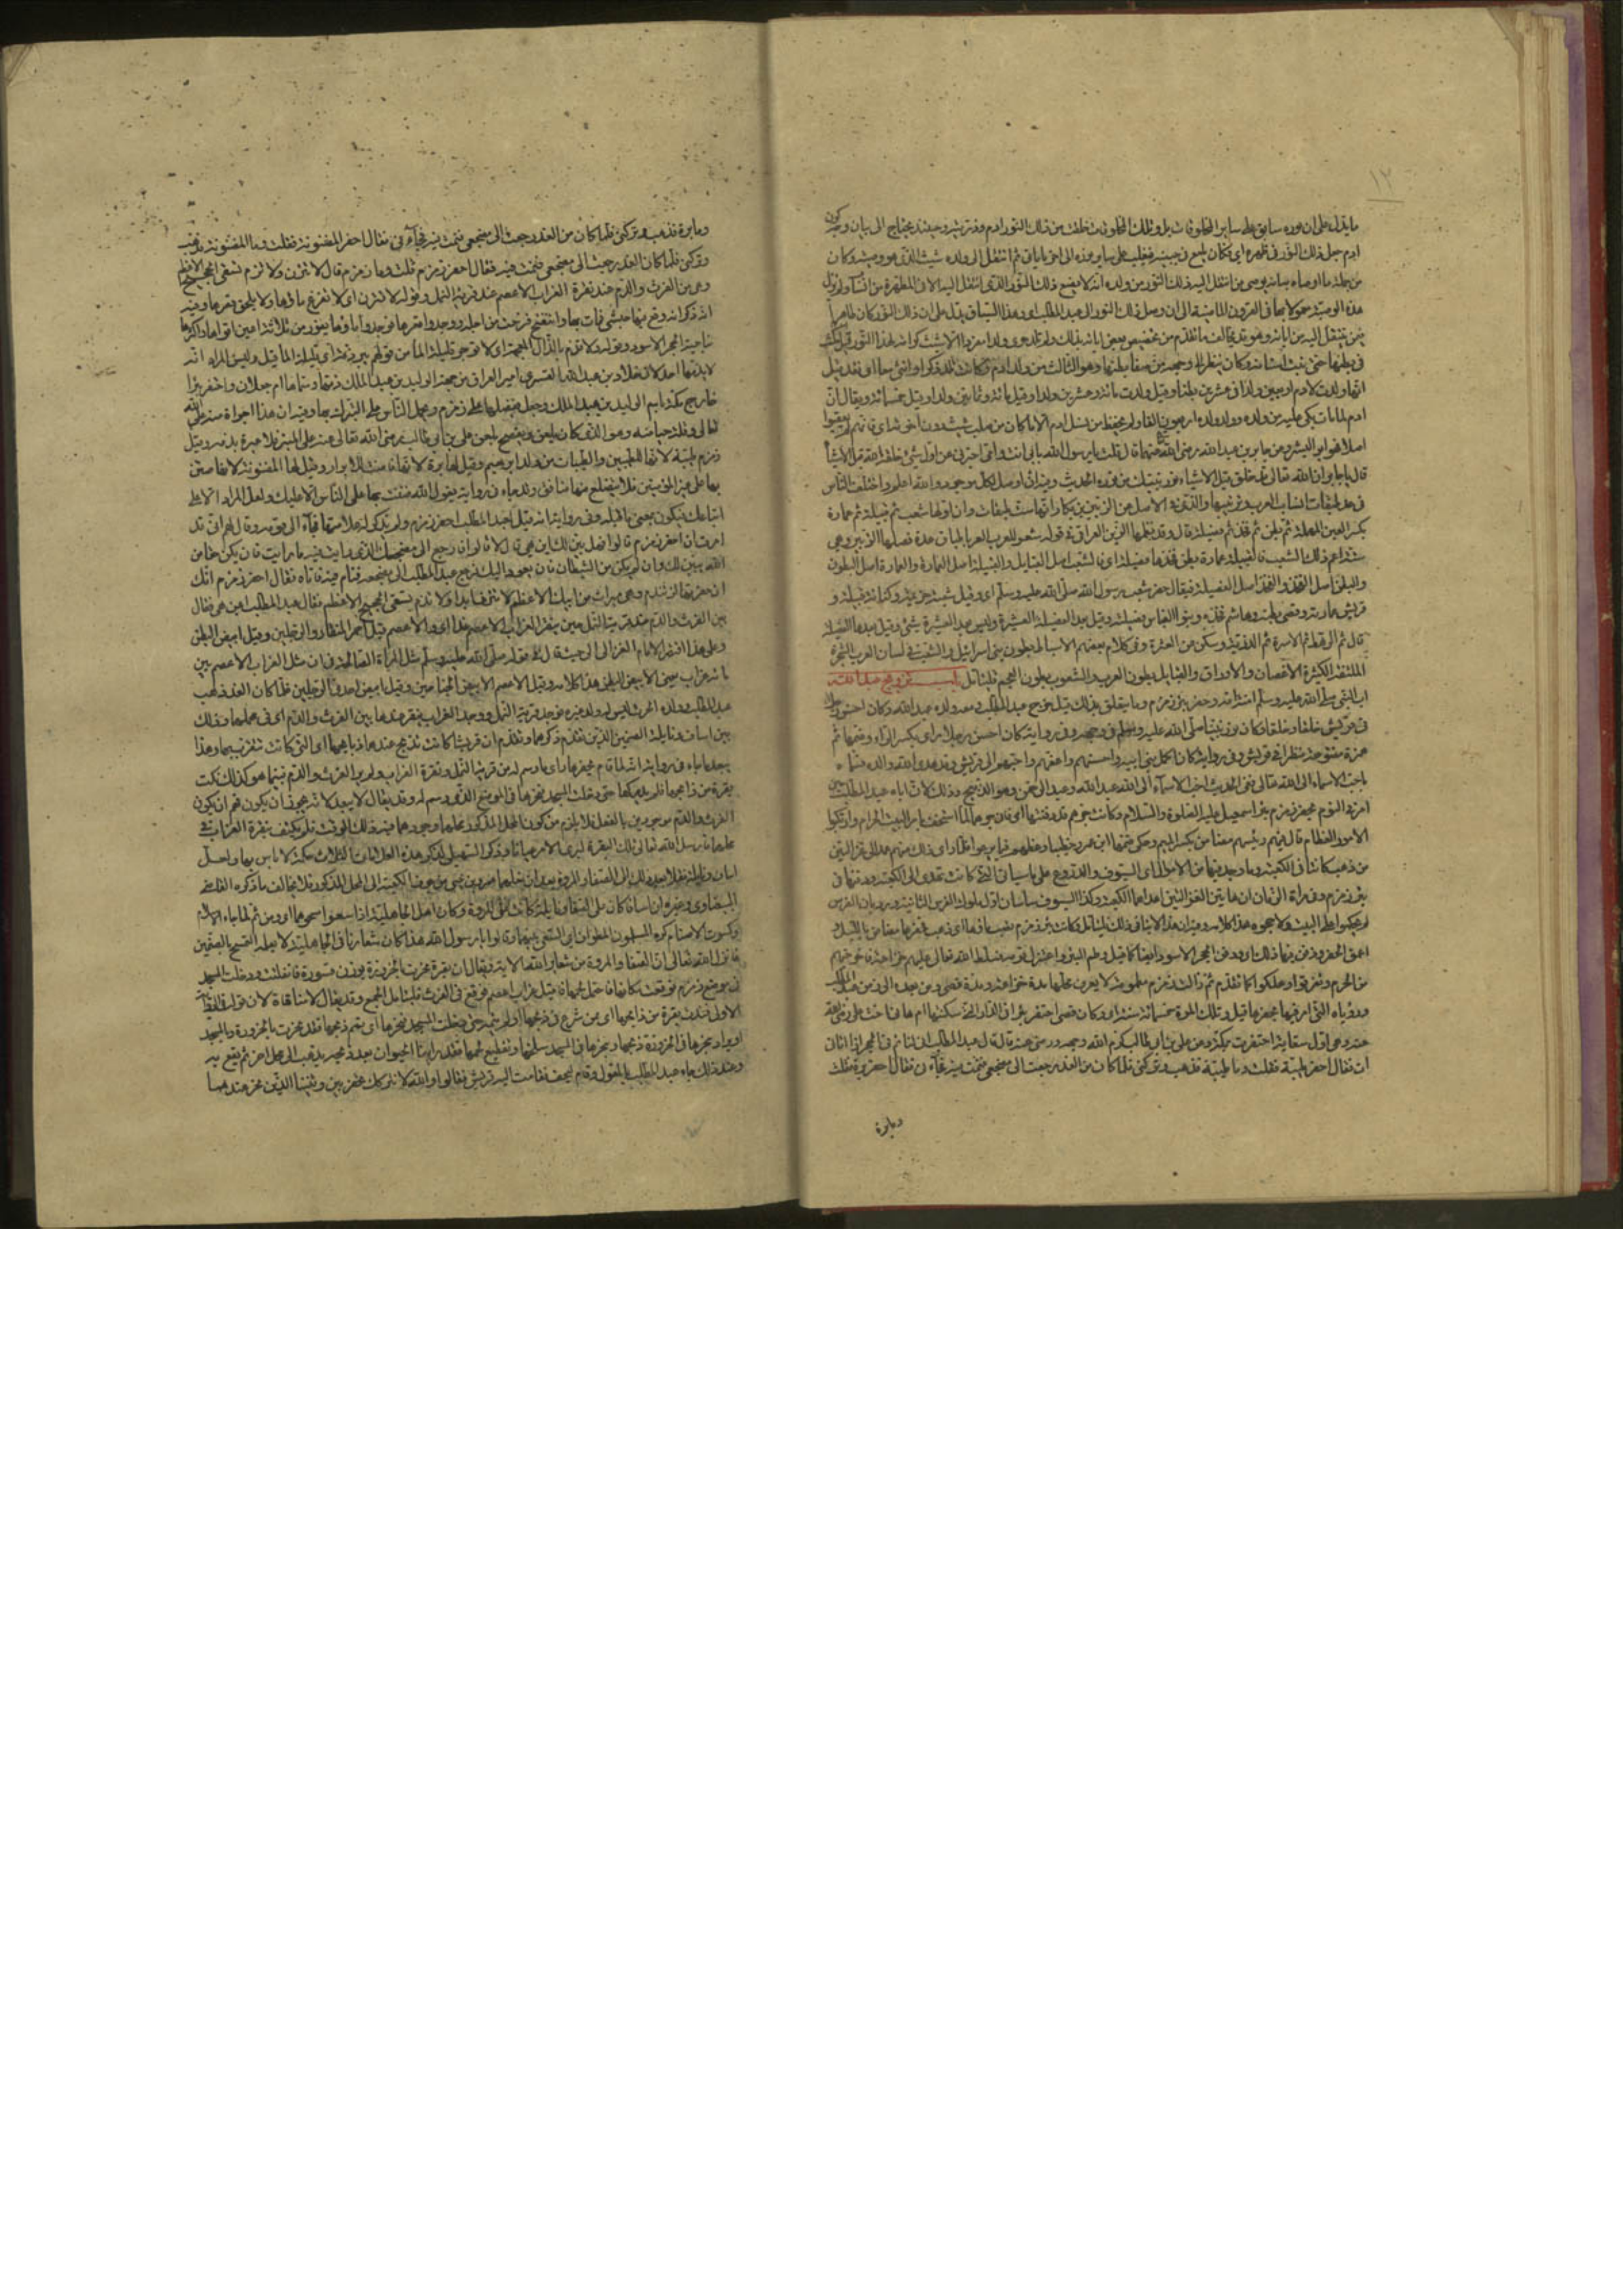 ١٢
ما يدل على ان نوره سابق على ساير المخلوقات بل وتلك المخلوقات خلقت من ذلك النور ادم وذريته وحينئذ يحتاج الى بيان وجه كون
ادم جعل ذلك النور في ظهره اي فكان يلمع في جبينه فيغلب على ساير نوره الى اخر ما ياتي ثم انتقل الى ولده شيث الذي هو وصيه وكان
من جملة ما اوصاه به انه يوصي من انتقل اليه ذلك النور من ولده انه لا يضع ذلك النور الذي انتقل اليه الا في المطهرة من النسآ ولم تزل
هذه الوصية معمولا بها في القرون الماضية الى ان وصل ذلك النور الى عبد المطلب اي وهذا السياق يدل على ان ذلك النور كان ظاهرا
فيمن ينتقل اليه من آبائه وهو قد يخالف ما تقدم من تخصيص بعض ابائه بذلك ولم تلد حوى ولدا مفردا الا شيث كرامة لهذا النور قيل مكث
في بطنها حتى نبتت اسنانه وكان ينظر الى وجهه من صفا بطنها وهو الثالث من ولد ادم وكانت تلد ذكرا وانثى معا اي فقد قيل
انها ولدت لادم اربعين ولدا في عشرين بطنا وقيل ولدت مائة وعشرين ولدا وقيل مائة وثمانين ولدا وقيل خمسمائة ويقال ان
ادم لما مات بكى عليه من ولده وولد ولده اربعون الفا ولم يحفظ من نسل ادم الا ما كان من صلب شيث دون اخوته اي فانهم لم يعقبوا
اصلا فهو ابو البشر وعن جابر بن عبد الله رضي الله عنهما قال قلت يا رسول الله بابي انت وامي اخبرني عن اول شئ خلقه الله قبل الاشيا
قال يا جابر ان الله تعالى قد خلق قبل الاشياء نور نبيك من نوره الحديث وفيه انه اصل لكل موجود والله اعلم واختلف الناس
في عد طبقات انساب العرب وترتيبها والذي في الاصل عن الزبير بن بكار انها ست طبقات وان اولها شعب ثم قبيلة ثم عمارة
بكسر العين المهملة ثم بطن ثم فخذ ثم فصيلة قال وقد نظمها الزين العراقي في قوله شعر للعرب العربا طباق عدة فصلها الزبير وهي
ستة اعم ذلك الشعب فالقبيلة عمارة بطن فخذها فصيلة اي فالشعب اصل القبايل والقبيلة اصل العمارة والعمارة اصل البطون
والبطن اصل الفخذ والفخذ اصل الفصيلة فيقال مضر شعب رسول الله صلى الله عليه وسلم اي وقيل شعبه خزيمة وكنانة قبيلته و
قريش عمارته وقصي بطنه وهاشم فخذه وبنوا العباس فصيلته وقيل بعد الفصيلة العشيرة وليس بعد العشيرة شئ وقيل بعدها الفصيلة
قال ثم الرهط ثم الاسرة ثم الذرية وسكت عن العترة وفي كلام بعضهم الاسباط بطون بني اسرائيل والشعب في لسان العرب الشجرة
الملتفة الكثيرة الاغصان والاوراق والقبايل بطون العرب والشعوب بطون العجم فليتامل باب تزويج عبد الله
ابي النبي صلى الله عليه وسلم امنة امه وحفر بئر زمزم وما يتعلق بذلك قيل خرج عبد المطلب ومعه ولده عبد الله وكان احسن رجل
في قريش خلقا وخلقا وكان نور نبينا صلى الله عليه وسلم في وجهه وفي رواية كان احسن رجل رأى بكسر الراء وضمها ثم
همزة مفتوحة منظرا في قريش وفي رواية كان اكمل بني ابيه واحسنهم واعفهم واحبهم الى قريش وقد هدى الله والده فسماه
باحب الاسماء الى الله تعالى ففي الحديث احب الاسمآء الى الله عبد الله وعبد الرحمن وهو الذبيح وذلك لان اباه عبد المطلب حين
امر في النوم بحفر زمزم بئر اسمعيل عليه الصلوة والسلام وكانت جرهم قد دفنتها اي فان جرهما لما استخفت بامر البيت الحرام وارتكبوا
الامور العظام قام فيهم رئيسهم مضاض بكسر الميم وحكي ضمها ابن عمرو خطيبا ووعظهم فلم يرعووا فلما راى ذلك منهم عمد الى غزالتين
من ذهب كانتا في الكعبة وما وجد فيها من الاموال اي السيوف والدروع على ما سياتي التي كانت تهدى الى الكعبة ودفنها في
بئر زمزم وفي مرآة الزمان ان هاتين الغزالتين اهداهما للكعبة وكذا السيوف ساسان اول ملوك الفرس الثانية ورد بان الفرس
لم يحكموا على البيت ولا حجوه هذا كلامه وفيه ان هذا لا ينافي ذلك فليتامل وكانت بئر زمزم نضب ماؤها اي ذهب فحفرها مضاض بالليل و
اعمق الحفر ودفن فيها ذلك اي ودفن الحجر الاسود ايضا كما قيل وطم البئر واعتزل قومه فسلط الله تعالى عليهم خزاعة فاخرجتهم
من الحرم وتفرقوا وهلكوا كما تقدم ثم لا زالت زمزم مطمومة لا يعرف محلها مدة خزاعة ومدة قصي ومن بعده الى زمن عبد المطلب
ورؤياه التي امر فيها بحفرها قيل وتلك المدة خمسمائة سنة اي وكان قصي احتفر بئرا في الدار التي سكنتها ام هانئ اخت علي رضي الله
عنه وهي اول سقاية احتفرت بمكة وعن علي بن ابي طالب كرم الله وجهه ورضي عنه قال قال عبد المطلب اني لنائم في الحجر اذ اتاني
ات فقال احفر طيبة فقلت وما طيبة فذهب وتركني فلما كان من الغد رجعت الى مضجعي فنمت فيه فجآءني فقال احفر برة فقلت
وما برة
وما برة فذهب وتركني فلما كان من الغد رجعت الى مضجعي فنمت فيه فجآءني فقال احفر المضنونة فقلت وما المضنونة فذهب
وتركني فلما كان الغد رجعت الى مضجعي فنمت فيه فقال احفر زمزم فقلت وما زمزم قال لا تنزف ولا تذم تسقي الحجيج الاعظم
وهي بين الفرث والدم عند نقرة الغراب الاعصم عند قرية النمل وقوله لا تنزف اي لا يفرغ ماؤها ولا يلحق قعرها وفيه
انه ذكر انه وقع فيها حبشي فمات بها وانتفخ فنزحت من اجله ووجدوا قعرها فوجدوا ماؤها يفور من ثلاثة اعين اقواها واكثرها
ناحية الحجر الاسود وقوله ولا تذم بالذال المعجمة اي لا توجد قليلة الما من قولهم بير ذمة اي قليلة الما قيل وليس المراد انه
لا يذمها احد لان خالد بن عبد الله القسري امير العراق من جهة الوليد بن عبد الملك ذمها وسماها ام جعلان واحتفر بئرا
خارج مكة باسم الوليد بن عبد الملك وجعل يفضلها على زمزم ويحمل الناس على التبرك بها وفيه ان هذا اجراة منه على الله
تعالى وقلة حيا منه وهو الذي كان يلعن ويفصح بلعن علي بن ابي طالب رضي الله تعالى عنه على المنبر فلا عبرة بذمه وقيل
زمزم طيبة لانها للطيبين والطيبات من ولد ابرهيم وقيل لها برة لانها فاضت للابرار وقيل لها المضنونة لانها ضن
بها على غير المؤمنين فلا يتضلع منها منافق وقد جاء في رواية يقول الله ضننت بها على الناس الا عليك ولعل المراد الا على
اتباعك فيكون بمعنى ما قبله وفي رواية انه قيل لعبد المطلب احفر زمزم ولم يذكر له علامتها فجآء الى قومه وقال لهم اني قد
امرت ان احفر زمزم قالوا فهل بين لك اين هي قال لا قالوا فارجع الى مضجعك الذي رايت فيه ما رايت فان يكن حقا من
الله يبين لك وان يكن من الشيطان فلن يعود اليك فرجع عبد المطلب الى مضجعه فنام فيه فاتاه فقال احفر زمزم انك
ان حفرتها لن تندم وهي ميراث من ابيك الاعظم لا تنزف ابدا ولا تذم تسقي الحجيج الاعظم فقال عبد المطلب اين هي فقال
بين الفرث والدم عند قرية النمل حين ينقر الغراب الاعصم غدا اي والاعصم قيل احمر المنقار والرجلين وقيل ابيض البطن
وعلى هذا اقتصر الامام الغزالي حيث قال في قوله صلى الله عليه وسلم مثل المراة الصالحة في النساء مثل الغراب الاعصم بين
مائة غراب يعني الابيض البطن هذا كلامه وقيل الاعصم الابيض الجناحين وقيل ابيض احدى الرجلين فلما كان الغد ذهب
عبد المطلب وولده الحرث ليس له ولد غيره فوجد قرية النمل ووجد الغراب ينقر عندها بين الفرث والدم اي في محلهما وذلك
بين اساف ونايلة الصنمين اللذين تقدم ذكرهما وتقدم ان قريشا كانت تذبح عندهما ذبايحها اي التي كانت تتقرب بها وهذا
يبعده ما جاء في رواية انه لما قام ليحفرها راى ما رسم له من قرية النمل ونقرة الغراب ولم ير الفرث والدم فبينما هو كذلك ندت
بقرة من ذابحها فلم يدركها حتى دخلت المسجد فنحرها في الموضع الذي رسم له وقد يقال لا يبعد لانه يجوز ان يكون فهم ان يكون
الفرث والدم موجودين بالفعل فلا يلزم من كون المحل المذكور محلهما وجودهما فيه ذلك الوقت فلم يكتف بنقرة الغراب في
محلهما فارسل الله تعالى تلك البقرة ليرى الامر عيانا وذكر السهيلي لذكر هذه العلامات الثلاث حكمة لا باس بها ولعل
اساف ونايلة نقلا بعد ذلك الى الصفا والمروة بعد ان نقلهما عمرو بن لحي من جوف الكعبة الى المحل المذكور فلا يخالف ما ذكره القاضي
البيضاوي وغيره ان اسافا كان على الصفا ونايلة كانت على المروة وكان اهل الجاهلية اذا سعوا مسحوهما اي ومن ثم لما جاء الاسلام
وكسرت الاصنام كره المسلمون الطواف اي السعي بينهما وقالوا يا رسول الله هذا كان شعارنا في الجاهلية لاجل التمسح بالصنمين
فانزل الله تعالى ان الصفا والمروة من شعائر الله الاية ويقال ان بقرة نحرت بالحزورة بوزن قسورة فانفلتت ودخلت المسجد
في موضع زمزم فوقعت مكانها فاحتمل لحمها فاقبل غراب اعصم فوقع في الفرث فليتامل الجمع وقد يقال لا منافاة لان قوله في الرواية
الاولى فندت بقرة من ذابحها اي ممن شرع في ذبحها ولم يتم حتى دخلت المسجد فنحرها اي تمم ذبحها فقد نحرت بالحزورة وبالمسجد
او يراد بنحرها في الحزورة ذبحها وبنحرها في المسجد سلخها وتقطيع لحمها فقد راينا الحيوان بعد ذبحه يذهب الى محل اخر ثم يقع به
وعند ذلك جاء عبد المطلب بالمعول وقام ليحفر فقامت اليه قريش فقالوا والله لا نتركك تحفر بين وثنينا اللذين ننحر عندهما